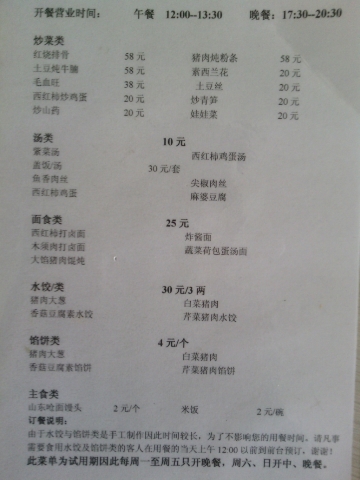 开餐营业时间： 午餐 12:00--13:30 晚餐：17:30--20:30
炒菜类
红烧排骨 58 元 猪肉炖粉条 58 元
土豆炖牛腩 58 元 素西兰花 20 元
毛血旺 38 元 土豆丝 20 元
西红柿炒鸡蛋 20 元 炒青笋 20 元
炒山药 20 元 娃娃菜 20 元
汤类 10 元
紫菜汤 西红柿鸡蛋汤
盖饭/汤 30 元/套
鱼香肉丝 尖椒肉丝
西红柿鸡蛋 麻婆豆腐
面食类 25 元
西红柿打卤面 炸酱面
木须肉打卤面 蔬菜荷包蛋汤面
大馅猪肉馄炖
水饺/类 30 元/3 两
猪肉大葱 白菜猪肉
香菇豆腐素水饺 芹菜猪肉水饺
馅饼类 4 元/个
猪肉大葱 白菜猪肉
香菇豆腐素馅饼 芹菜猪肉馅饼
主食类
山东呛面馒头 2 元/个 米饭 2 元/碗
订餐说明：
由于水饺与馅饼类是手工制作因此时间较长，为了不影响您的用餐时间，请凡事
需要食用水饺及馅饼类的客人在用餐的当天上午 12:00 以前到前台预订，谢谢！
此菜单为试用期因此每周一至周五只开晚餐，周六、日开中、晚餐。